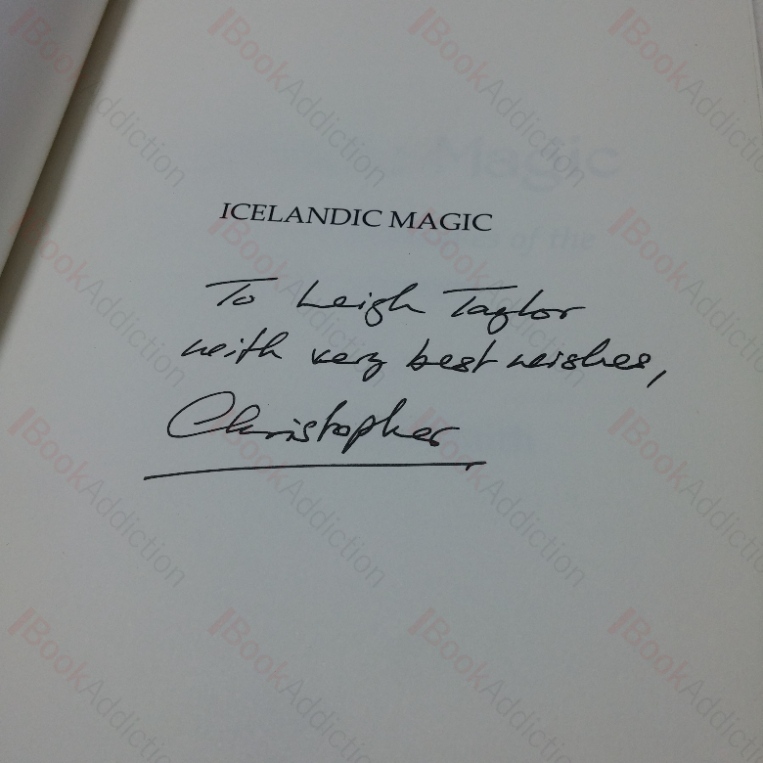 Magic
ICELANDIC MAGIC
of the
To Leigh Taylor
with very best wishes,
Christopher
BookAddiction